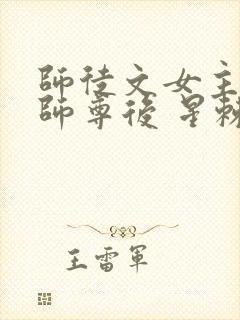 師徒文女主
師尊後 星赖
王雷軍